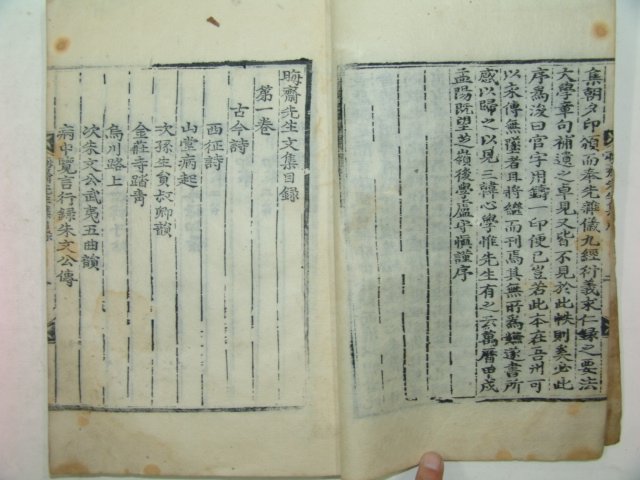 集朝夕印領而奉先雜儀九經衍義求仁錄之要法
大學章句補遺之卓見又皆不見於此帙則奚必此
序爲浚曰官字用鑄一印便已豈若此本在吾州可
以永傳無壅者耳將繼而刊焉其無所爲無遂書所
感以歸之以見三緯心學惟先生有之云萬曆甲戌
孟陽既望芝嶺後學盧守愼謹序
晦齋先生文集目錄
第一卷
古今詩
西征詩
山堂病起
次孫生負叔卿韻
金莊寺踏青
烏川路上
次朱文公武夷五曲韻
病中覽言行錄朱文公傳